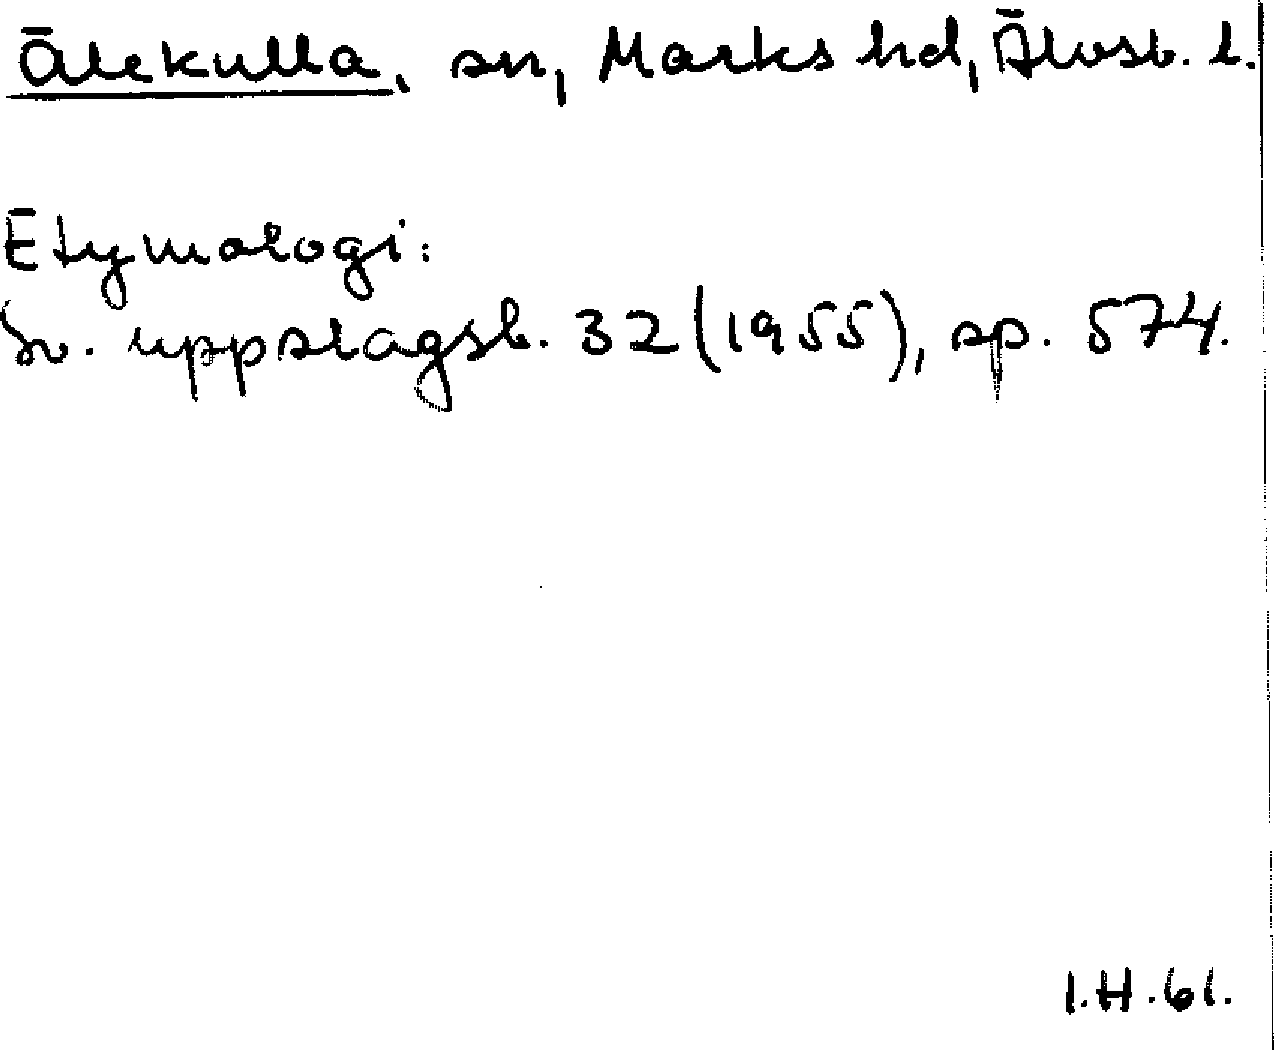 Älekulla, sn, Marks hd, Älvsb. l.
Etymologi:
Sv. uppslagsb. 32 (1955), sp. 574.
I.H.61.